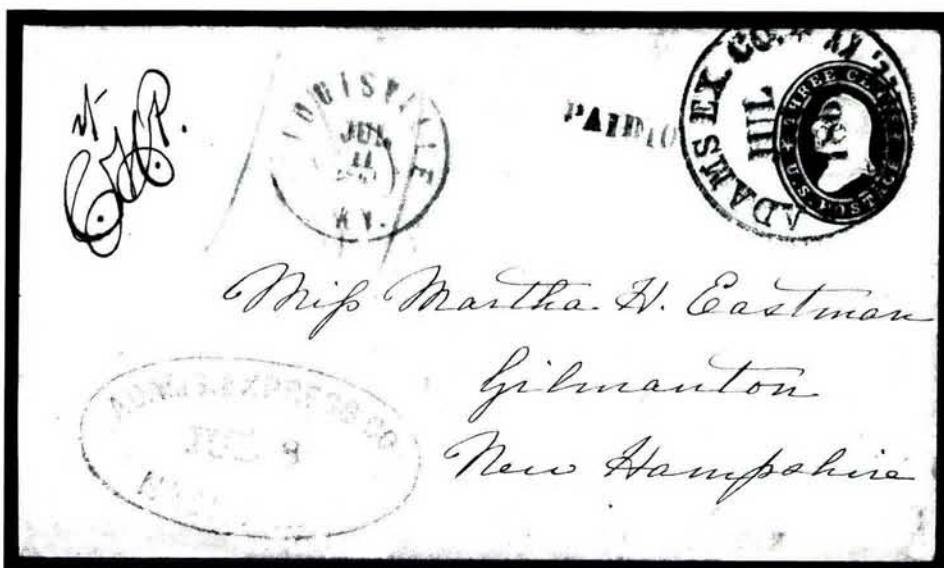 LOUISVILLE
JUL
11
KY.
PAID 10
ADAMS EX. CO.
JUL
186
THREE CENTS
U.S. POSTAGE
Miſs Martha. H. Eastman
Gilmanton
New Hampshire
ADAMS EXPRESS CO
JUL 8